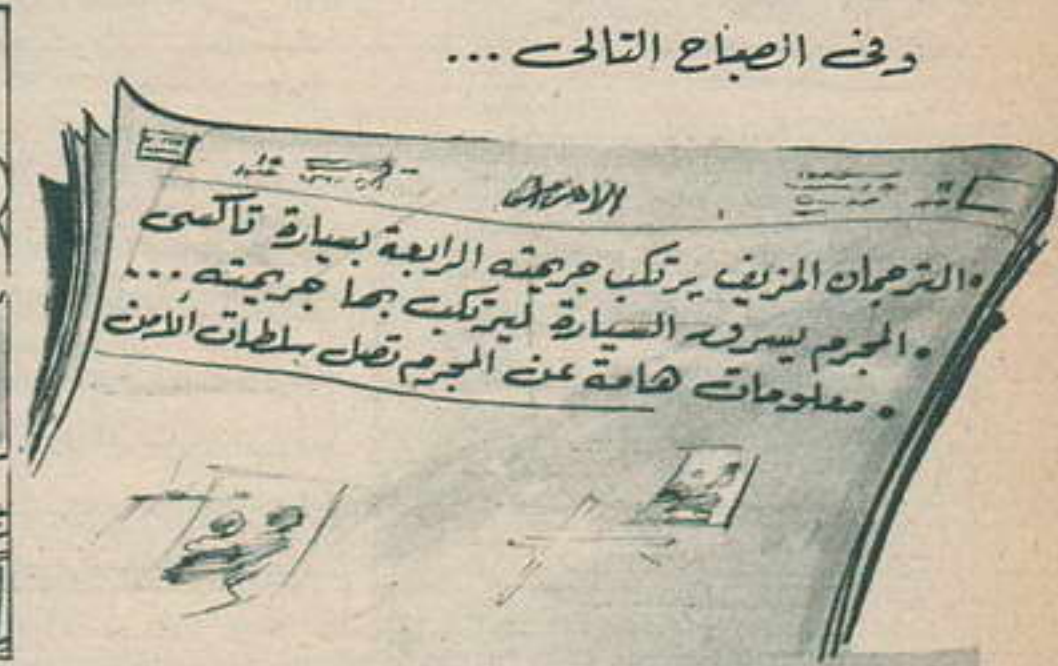 وفى الصباح التالى ...
• الترجمان المزيف يرتكب جريمته الرابعة بسيارة تاكسى
• المجرم يسرق السيارة ليرتكب بها جريمته ...
• معلومات هامة عن المجرم تصل سلطات الأمن